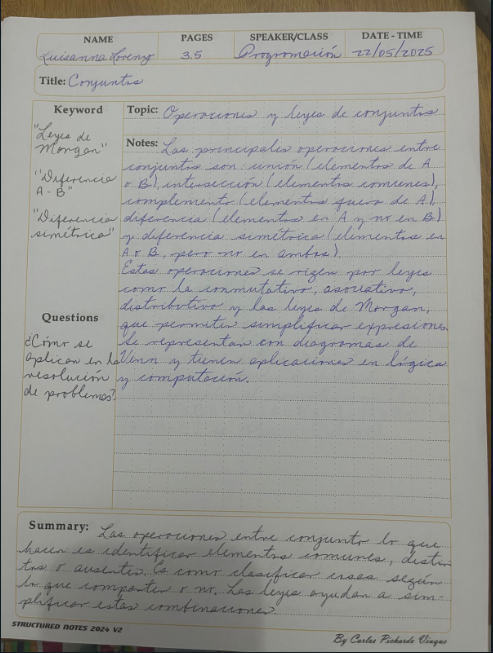 NAME PAGES SPEAKER/CLASS DATE - TIME
Luisanna Lorenzo 3.5 Programación 22/05/2025
Title: Conjuntos
Keyword
"Leyes de
Morgan"
"Diferencia
A - B"
"Diferencia
simétrica"
Questions
¿Cómo se
aplican en la
resolución
de problemas?
Topic: Operaciones y leyes de conjuntos
Notes: Las principales operaciones entre
conjuntos son unión (elementos de A
o B), intersección (elementos comunes),
complemento (elementos fuera de A),
diferencia (elementos en A y no en B)
y diferencia simétrica (elementos en
A o B, pero no en ambos).
Estas operaciones se rigen por leyes
como la conmutativa, asociativa,
distributiva y las leyes de Morgan,
que permiten simplificar expresiones.
Se representan con diagramas de
Venn y tienen aplicaciones en lógica
y computación.
Summary: Las operaciones entre conjunto lo que
hacen es identificar elementos comunes, distin
tos o ausentes. Es como clasificar cosas según
lo que comparten o no. Las leyes ayudan a sim-
plificar estas combinaciones.
STRUCTURED NOTES 2024 V2
By Carlos Pichardo Vinque